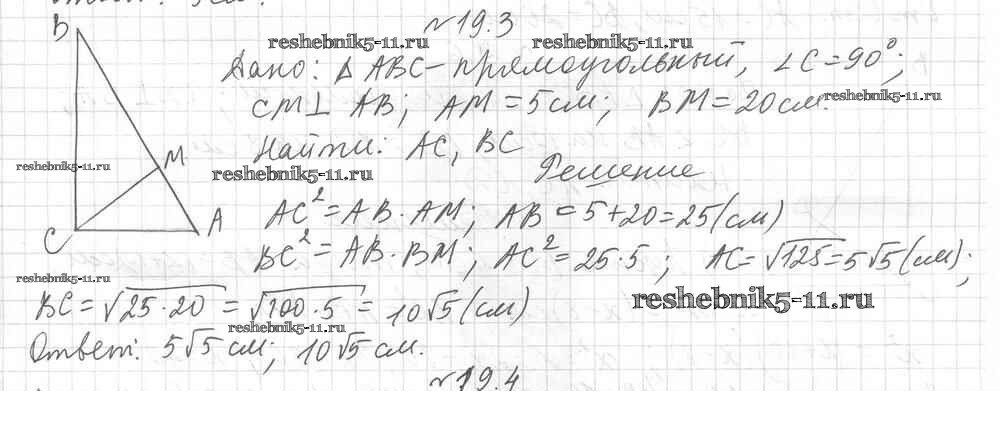 №19.3
B
reshebnik5-11.ru reshebnik5-11.ru
Дано: Δ ABC – прямоугольный, ∠C = 90°;
CM ⊥ AB; AM = 5 см; BM = 20 см
reshebnik5-11.ru
Найти: AC, BC
M
reshebnik5-11.ru reshebnik5-11.ru
Решение
AC² = AB · AM; AB = 5 + 20 = 25 (см)
C A
BC² = AB · BM; AC² = 25 · 5; AC = √125 = 5√5 (см);
reshebnik5-11.ru
BC = √25 · 20 = √100 · 5 = 10√5 (см)
reshebnik5-11.ru
reshebnik5-11.ru
Ответ: 5√5 см; 10√5 см.
№19.4